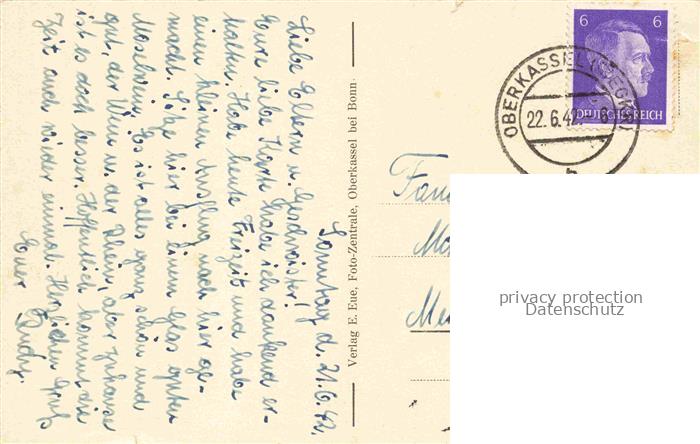 Sonntag d. 21.6.42.
Liebe Eltern u. Geschwister!
Eure liebe Karte habe ich dankend er-
halten. Habe heute Freizeit und habe
einen kleinen Ausflug nach hier ge-
macht. Sitze hier bei einem Glas guten
Moselwein. Es ist alles ganz schön und
gut, der Wein u. der Rhein, aber zuhause
ist es doch besser. Hoffentlich kommt die
Zeit auch wider einmal. Herzlichen Gruß
Euer
Verlag E. Eue, Foto-Zentrale, Oberkassel bei Bonn.
6 6
DEUTSCHES REICH
OBERKASSEL (SIEGKR)
22.6.42
Fam
Me
privacy protection
Datenschutz